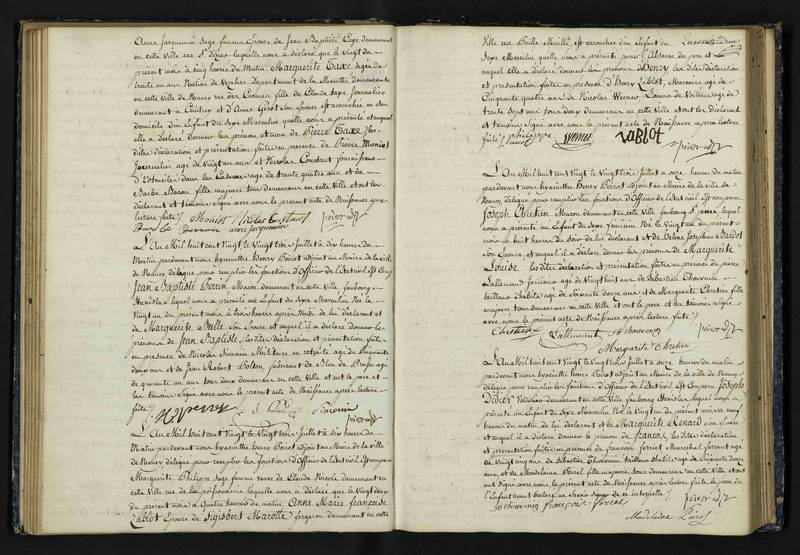 Anne Jacquemin sage femme Epouse de Jean Baptiste Cage demeurant
en cette ville rue St Dizier laquelle nous a déclaré que le vingt du
présent mois à cinq heures du matin Marguerite Taxe agée de
trente un ans Native de Departement de la Meurthe demeurante
en cette ville de Nancy rue des Carmes fille de Claude Taxe Journalier
demeurant à et d'Anne Son Epouse est accouchée en son
domicile d'un Enfant du Sexe Masculin quelle nous a présenté et auquel
elle a déclaré donner les prénom et nom de Pierre Taxe les
dites déclaration et présentation faites en présence de Pierre Moniot
agé de Vingt un ans et Nicolas Constant
agé de trente quatre ans et de
fille majeure tous demeurant en cette ville et ont les
déclarant et témoins Signé avec nous le présent acte de Naissance après
lecture faite Moniot Nicolas Constant
anne jacquemin
L'An Mil huit cent Vingt le Vingt trois Juillet à dix heures du
Matin pardevant nous hyacinthe Henry Poirot adjoint au Maire de la ville
de Nancy, délégué pour remplir les fonctions d'Officier de l'Etat civil Est Comparu
Jean Baptiste Perrin Macon demeurant en cette Ville faubourg
Stanislas lequel nous a présenté un Enfant du Sexe Masculin Né le
Vingt un du présent mois à trois heures après Midi de lui déclarant et
de Marguerite Bulle Son Epouse et auquel il a déclaré donner le
prénom de Jean Baptiste les dites déclaration et présentation faites
en présence de Nicolas Simonin Militaire en retraite agé de Cinquante
deux ans et de Jean
de quarante un ans tous deux demeurant en cette Ville et ont le père et
les témoins Signé avec nous le présent acte de Naissance après lecture
faite Simonin
L'An Mil huit cent Vingt le Vingt trois Juillet à dix heures du
Matin pardevant nous hyacinthe Henry Poirot adjoint au Maire de la ville
de Nancy délégué pour remplir les fonctions d'Officier de l'Etat civil Est comparu
Marguerite Philippe Sage femme veuve de Claude Nicole demeurant en
cette Ville rue de la poissonnerie laquelle nous a déclaré que le Vingt deux
du présent mois à Quatre heures du matin Anne Marie françoise
Lablot Epouse de Sigisbert Marotte forgeron demeurant en cette
Ville rue Paille Maille est accouchée d'un Enfant du Quarante deux
Sexe Masculin quelle nous a présenté pour l'absence du père et
auquel elle a déclaré donner le prénom de Henry les dites déclaration
et présentation faites en présence d'Henry Lablot, agé de
Cinquante quatre ans de Nicolas agé de
trente Sept ans tous deux demeurant en cette Ville et ont les déclarant
et témoins Signé avec nous le présent acte de Naissance après lecture
faite Philippe LABLOT
L'An Mil huit cent Vingt le Vingt trois Juillet à onze heures du matin
pardevant nous hyacinthe Henry Poirot adjoint au Maire de la Ville de
Nancy, délégué pour remplir les fonctions d'Officier de l'Etat civil est comparu
Joseph Chretien Macon demeurant en cette Ville faubourg St pierre lequel
nous a présenté un Enfant du Sexe féminin Né le Vingt un du présent
mois à huit heures du Soir de lui déclarant et de Josephine Bardot
Son Epouse, et auquel il a déclaré donner les prénoms de Marguerite
Louise les dites déclaration et présentation faites en présence de pierre
Lallemand Jardinier agé de Vingt huit ans de Sebastien Thouvenin
tailleur d'habits agé de Soixante douze ans et de Marguerite Chretien fille
majeure tous demeurant en cette Ville et ont le père et les témoins Signé
avec nous le présent acte de Naissance après lecture faite
Chretien Lallement Thouvenin
Marguerite Chretien
L'An Mil huit cent Vingt le Vingt trois Juillet à onze heures du matin
pardevant nous hyacinthe Henry Poirot adjoint au Maire de la Ville de Nancy
délégué pour remplir les fonctions d'Officier de l'Etat civil Est Comparu Joseph
Didier Voiturier demeurant en cette Ville faubourg Stanislas lequel nous a
présenté un Enfant du Sexe Masculin Né le Vingt un du présent mois à neuf
heures du matin de lui déclarant et de Marguerite Renard Son Epouse
et auquel il a déclaré donner le prénom de françois les dites déclaration
et présentation faites en présence de françois ferriet Marechal ferrant agé
de Vingt cinq ans de Sébastien Thouvenin tailleur d'habits agé de Soixante douze
ans et de Madelaine fille majeure tous demeurant en cette Ville et ont
Signé avec nous le présent acte de Naissance après lecture faite le père de
l'Enfant ayant déclaré ne Savoir Signer de ce interpellé
Thouvenin françois ferriet
Madelaine